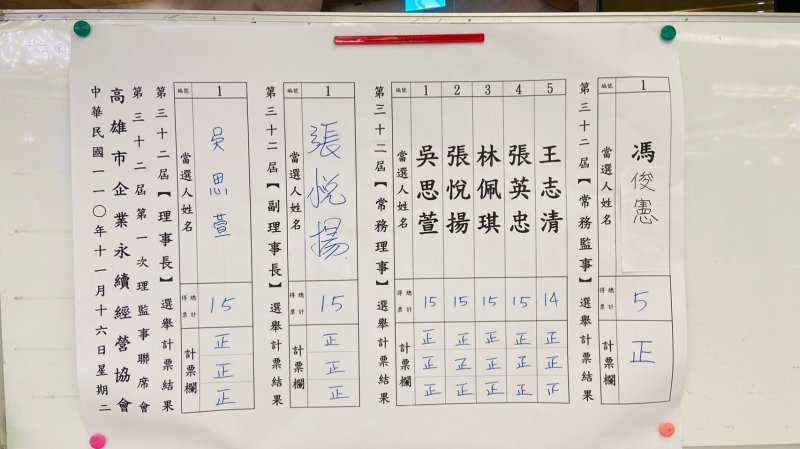 中華民國一一〇年十一月十六日星期二
高雄市企業永續經營協會
第三十二屆第一次理監事聯席會
第三十二屆【理事長】選舉計票結果
編號 1
當選人姓名 吳思萱
總計得票 15
計票欄 正正正
第三十二屆【副理事長】選舉計票結果
編號 1
當選人姓名 張悅揚
總計得票 15
計票欄 正正正
第三十二屆【常務理事】選舉計票結果
編號 1 2 3 4 5
當選人姓名 吳思萱 張悅揚 林佩琪 張英忠 王志清
總計得票 15 15 15 15 14
計票欄 正 正 正 正 正
正 正 正 正 正
正 正 正 正
第三十二屆【常務監事】選舉計票結果
編號 1
當選人姓名 馮俊憲
總計得票 5
計票欄 正